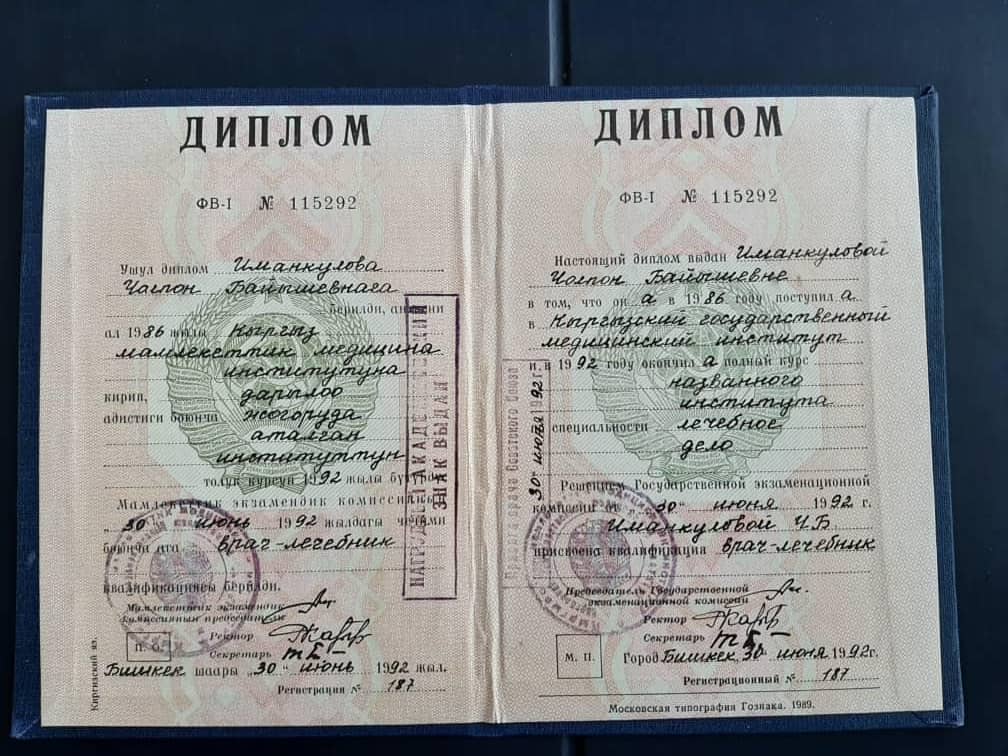 ДИПЛОМ
ФВ-I № 115292
Ушул диплом Иманкулова
Чолпон Байышевнага
берилди, ал
ал 1986 жылы Кыргыз
мамлекеттик медицина
институтуна
кирип, дарылоо
адистиги боюнча жогоруда
аталган
институттун
толук курсун 1992 жылы
Мамлекеттик экзамендик комиссиянын
„30" июнь 1992 жылдагы чечими
боюнча ага врач-лечебник
квалификациясы берилди.
Мамлекеттик экзамендик
комиссиянын председатели
Ректор
Секретарь
Бишкек шаары „30" июнь 1992 жыл.
Регистрация № 187
Киргизский яз.
ЗНАК ВЫДАН
ДИПЛОМ
ФВ-I № 115292
Настоящий диплом выдан Иманкуловой
Чолпон Байышевне
в том, что он а в 1986 году поступил а
в Кыргызский государственный
медицинский институт
и в 1992 году окончил а полный курс
названного
института
специальности лечебное
дело
Решением Государственной экзаменационной
комиссии от „30" июня 1992 г.
Иманкуловой Ч.Б
присвоена квалификация врач-лечебник
Председатель Государственной
экзаменационной комиссии
Ректор
Секретарь
М. П.
Город Бишкек 30 июня 1992г.
Регистрационный № 187
Московская типография Гознака. 1989.
врача Советского Союза
30 июня 1992 г.